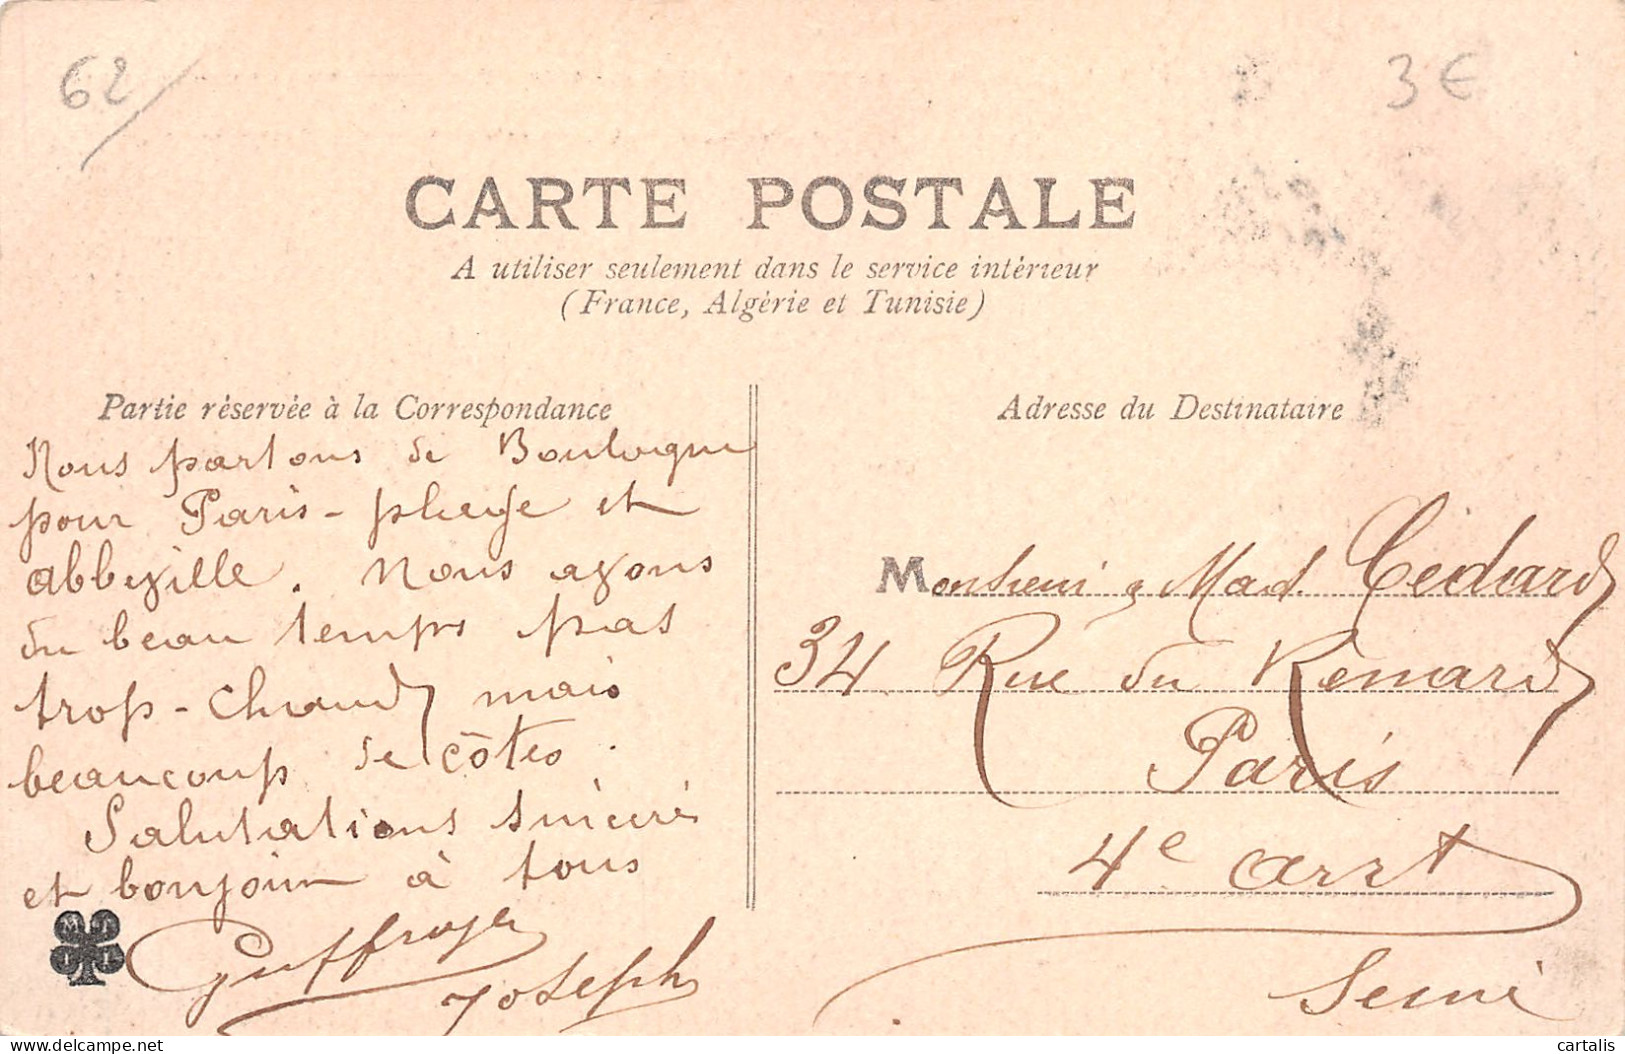 62
3 €
CARTE POSTALE
A utiliser seulement dans le service intérieur
(France, Algérie et Tunisie)
Partie réservée à la Correspondance
Nous partons de Boulogne
pour Paris-plage et
abbeville. Nous avons
du beau temps pas
trop-chaud mais
beaucoup de côtes.
Salutations sincère
et bonjour à tous
Joseph
Adresse du Destinataire
Monsieur & Mad. Cédard
34 Rue du Renard
Paris
4e arrt
Seine
cartalis